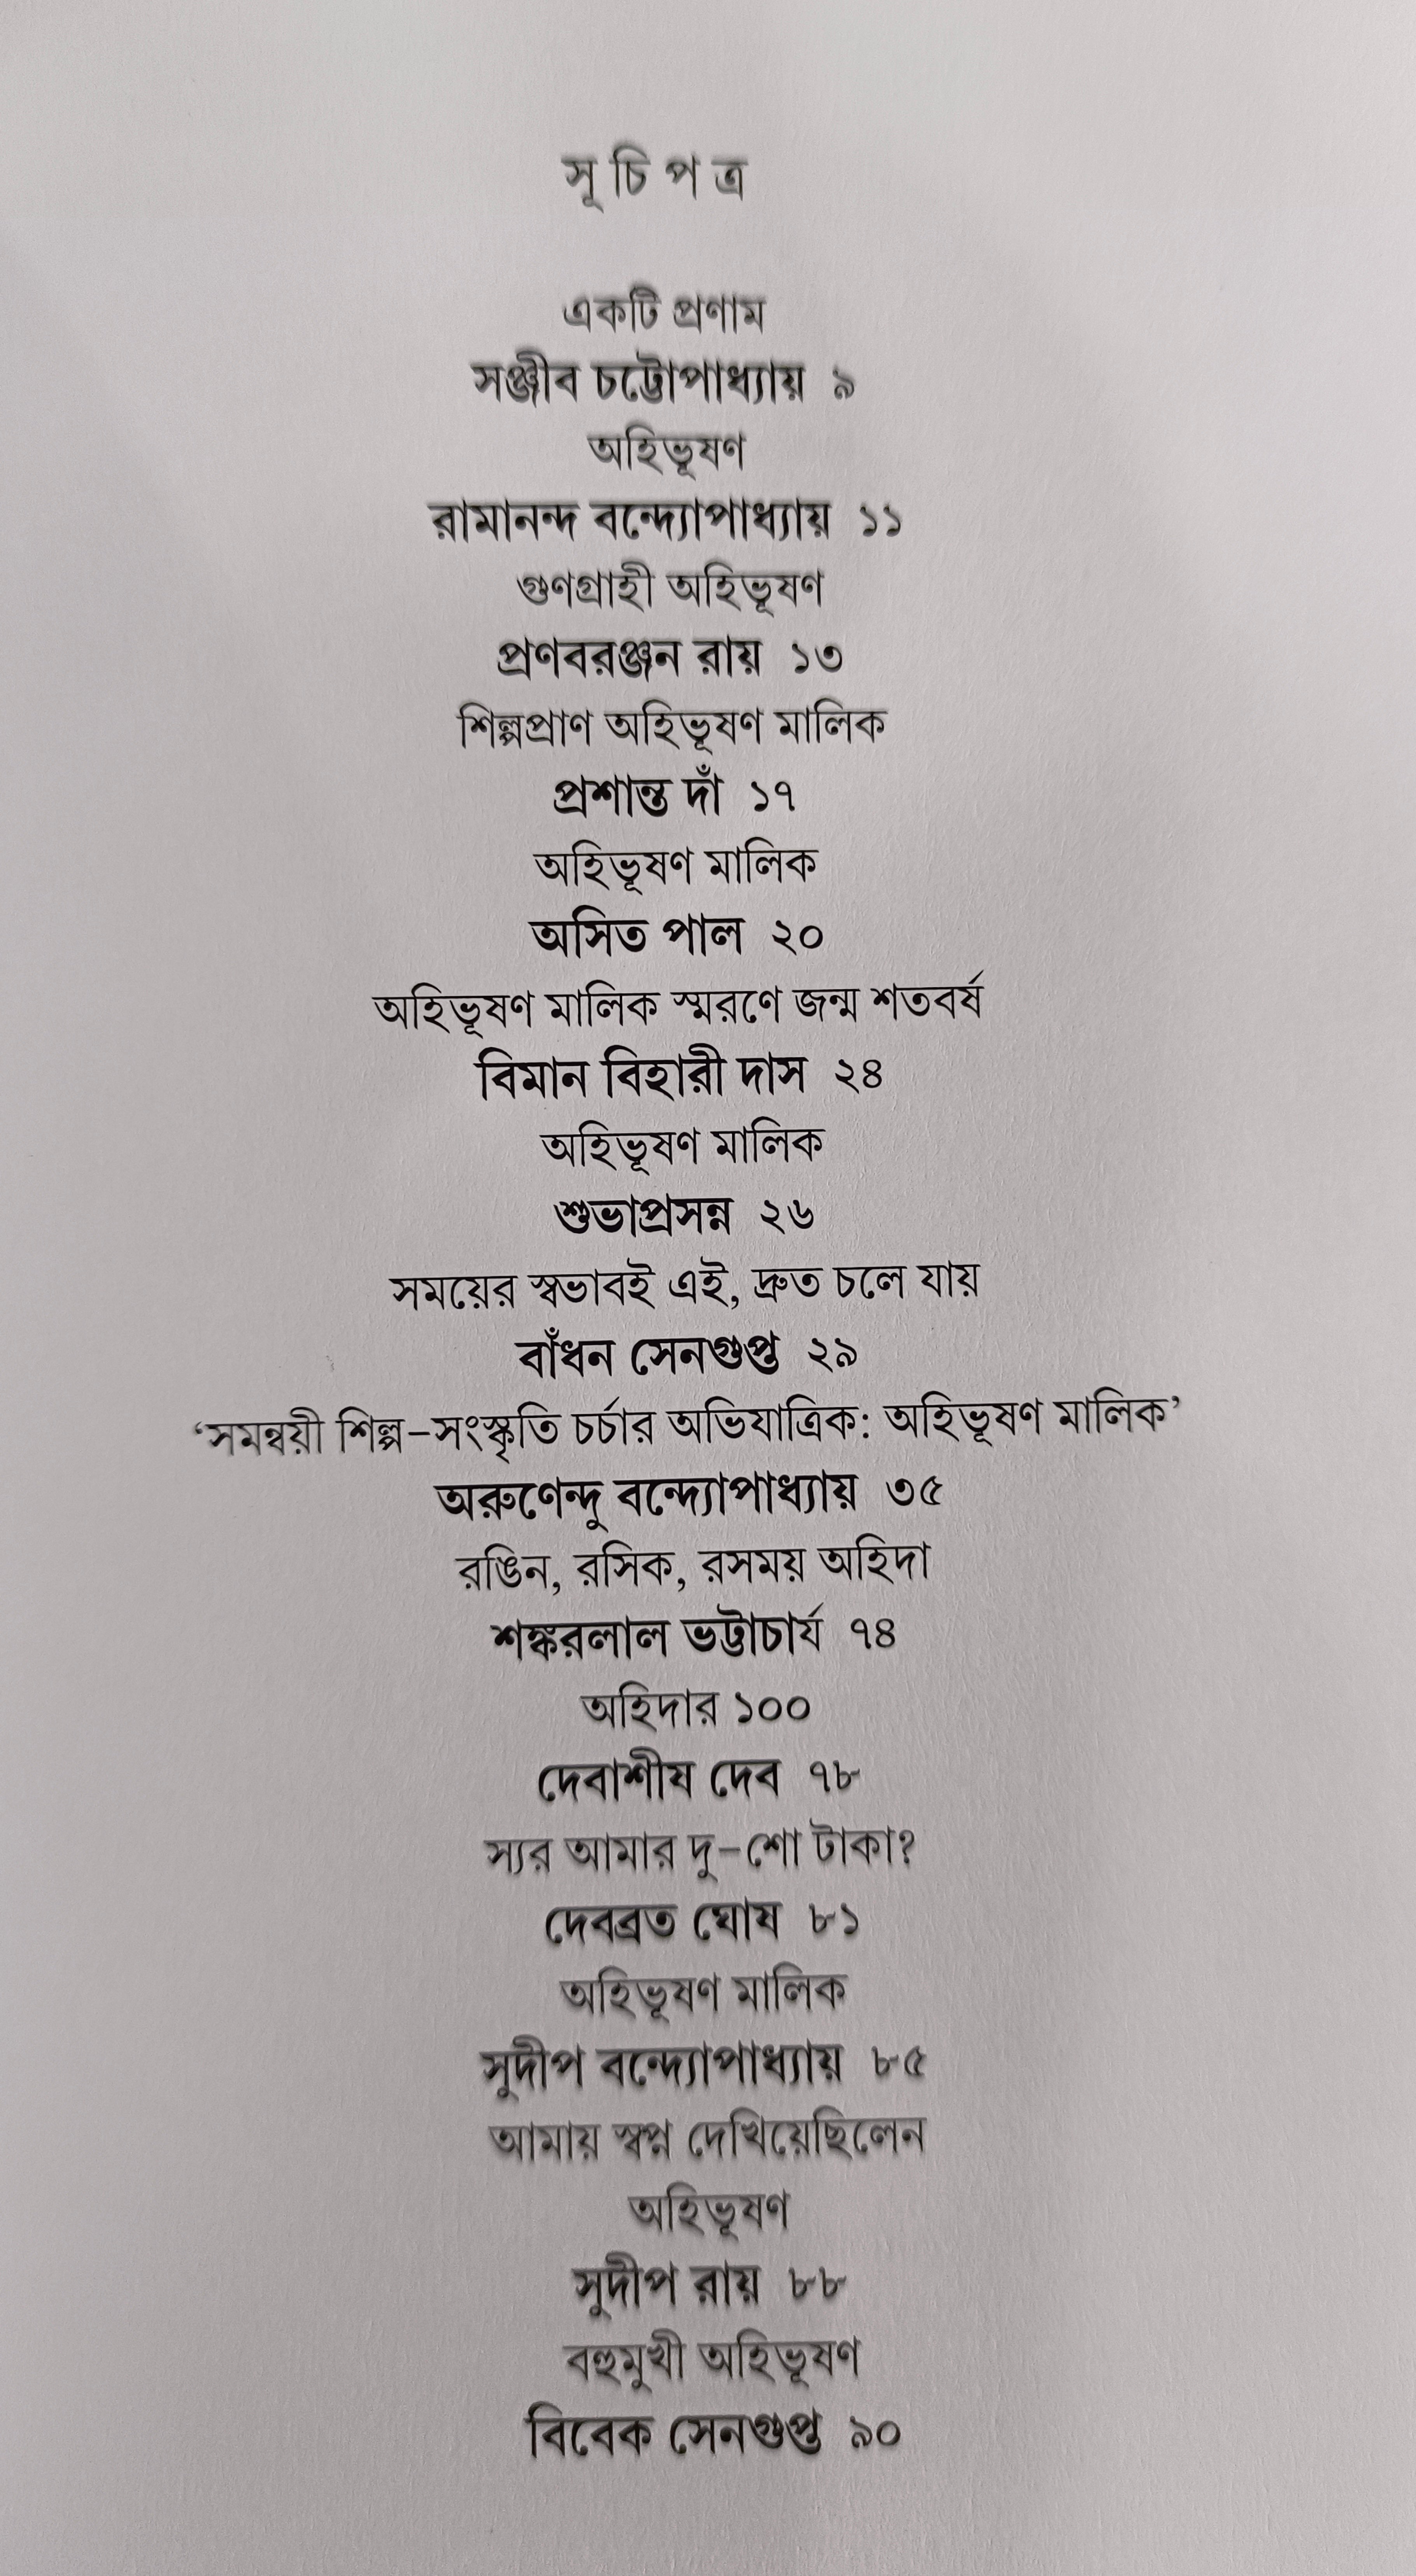 সূ চি প ত্র
একটি প্রণাম
সঞ্জীব চট্টোপাধ্যায় ৯
অহিভূষণ
রামানন্দ বন্দ্যোপাধ্যায় ১১
গুণগ্রাহী অহিভূষণ
প্রণবরঞ্জন রায় ১৩
শিল্পপ্রাণ অহিভূষণ মালিক
প্রশান্ত দাঁ ১৭
অহিভূষণ মালিক
অসিত পাল ২০
অহিভূষণ মালিক স্মরণে জন্ম শতবর্ষ
বিমান বিহারী দাস ২৪
অহিভূষণ মালিক
শুভাপ্রসন্ন ২৬
সময়ের স্বভাবই এই, দ্রুত চলে যায়
বাঁধন সেনগুপ্ত ২৯
‘সমন্বয়ী শিল্প-সংস্কৃতি চর্চার অভিযাত্রিক: অহিভূষণ মালিক’
অরুণেন্দু বন্দ্যোপাধ্যায় ৩৫
রঙিন, রসিক, রসময় অহিদা
শঙ্করলাল ভট্টাচার্য ৭৪
অহিদার ১০০
দেবাশীষ দেব ৭৮
স্যর আমার দু-শো টাকা?
দেবব্রত ঘোষ ৮১
অহিভূষণ মালিক
সুদীপ বন্দ্যোপাধ্যায় ৮৫
আমায় স্বপ্ন দেখিয়েছিলেন
অহিভূষণ
সুদীপ রায় ৮৮
বহুমুখী অহিভূষণ
বিবেক সেনগুপ্ত ৯০